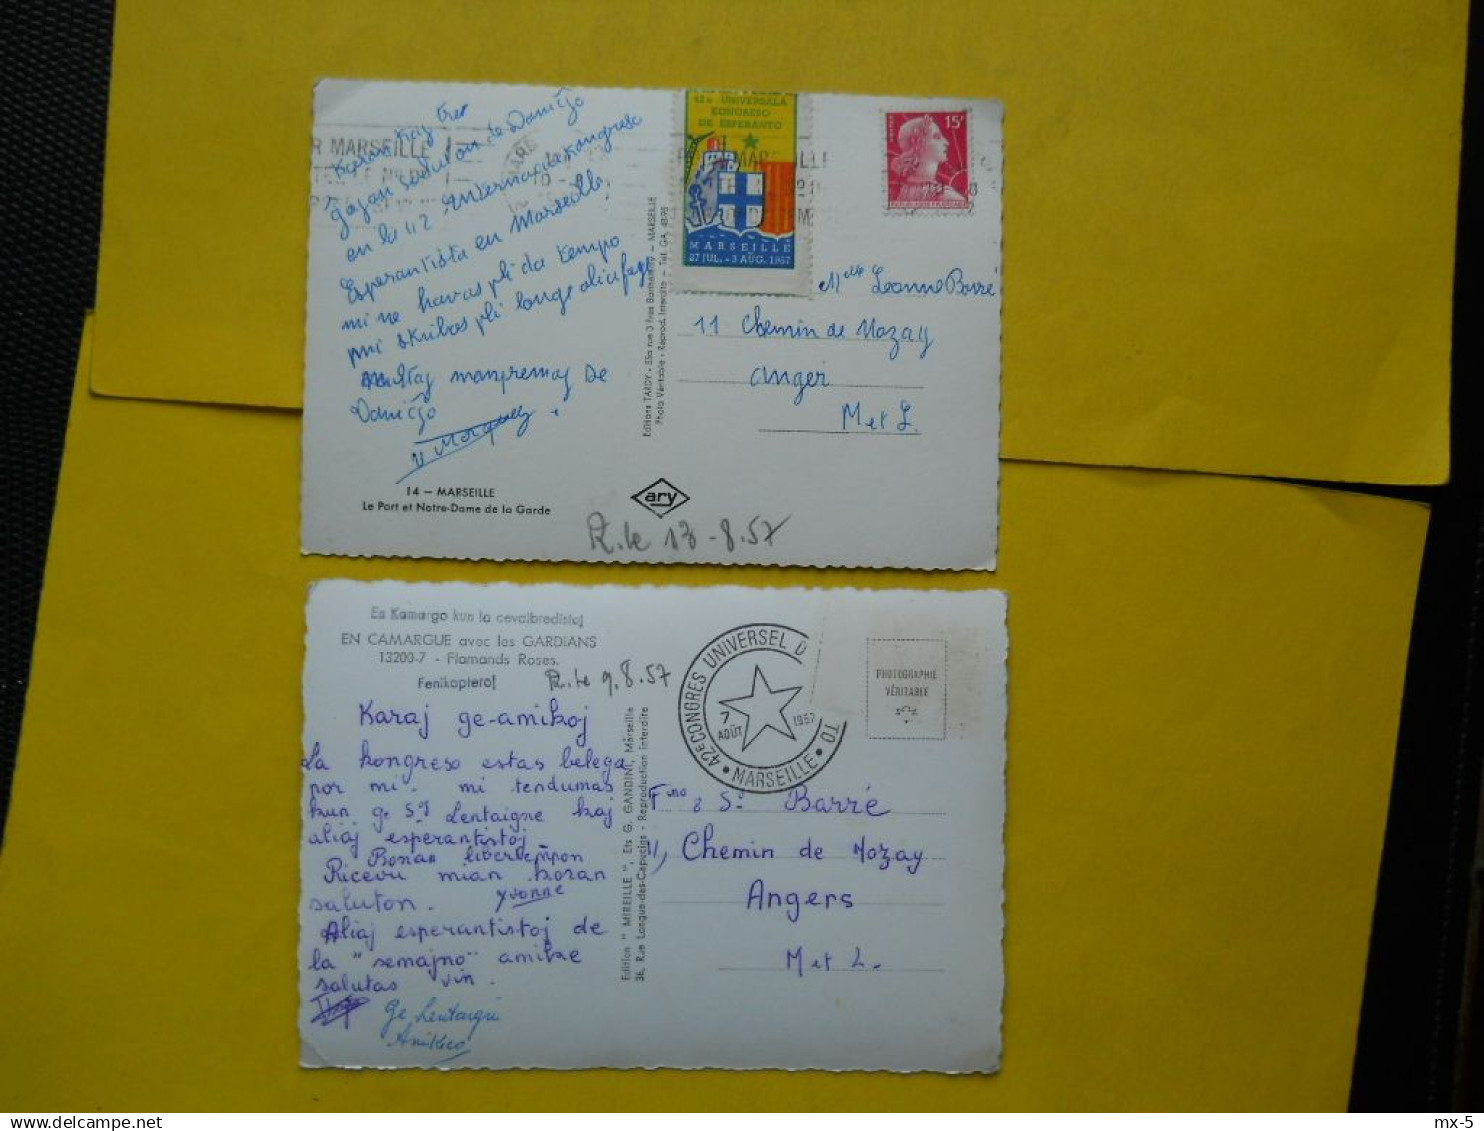 Koran kaj tre
gajan saluton de Daniĉjo
en la 42 Internacia Kongreso
Esperantista en Marseille.
mi ne havas pli da tempo
pri skribas pli longe
multaj manpremoj De
Daniĉjo
14 – MARSEILLE
Le Port et Notre-Dame de la Garde
ary
R. le 13-8.57
R MARSEILLE
Editions TARDY - 55a rue 3 Fres Barthélemy - MARSEILLE
Photo Véritable - Reprod. Interdite - Tél. GA. 48-95
42a UNIVERSALA
KONGRESO
DE ESPERANTO
MARSEILLE
27 JUL. - 3 AUG. 1957
15F
Mlle Leonne Barré
11 Chemin de Mozay
Anger
M et L.
En Kamargo kun la cevalbredistoj
EN CAMARGUE avec les GARDIANS
13200-7 - Flamands Roses.
Fenikopteroj
R. le 9.8.57
Karaj ge-amikoj
La kongreso estas belega
por mi. mi tendumas
kun ge Soj Lentaigne kaj
aliaj esperantistoj
Bonan libertempon
Ricevu mian koran
saluton. Yvonne
Aliaj esperantistoj de
la "semajno" amike
salutas vin.
Ge Lentaigne
Amikeco
Edition " MIREILLE ", Ets G. GANDINI, Marseille
36, Rue Longue-des-Capucins - Reproduction interdite
42e CONGRES UNIVERSEL D
TO
7
AOÛT
1957
MARSEILLE
PHOTOGRAPHIE
VÉRITABLE
Fino & So Barré
11, Chemin de Mozay
Angers
M et L.
mx-5